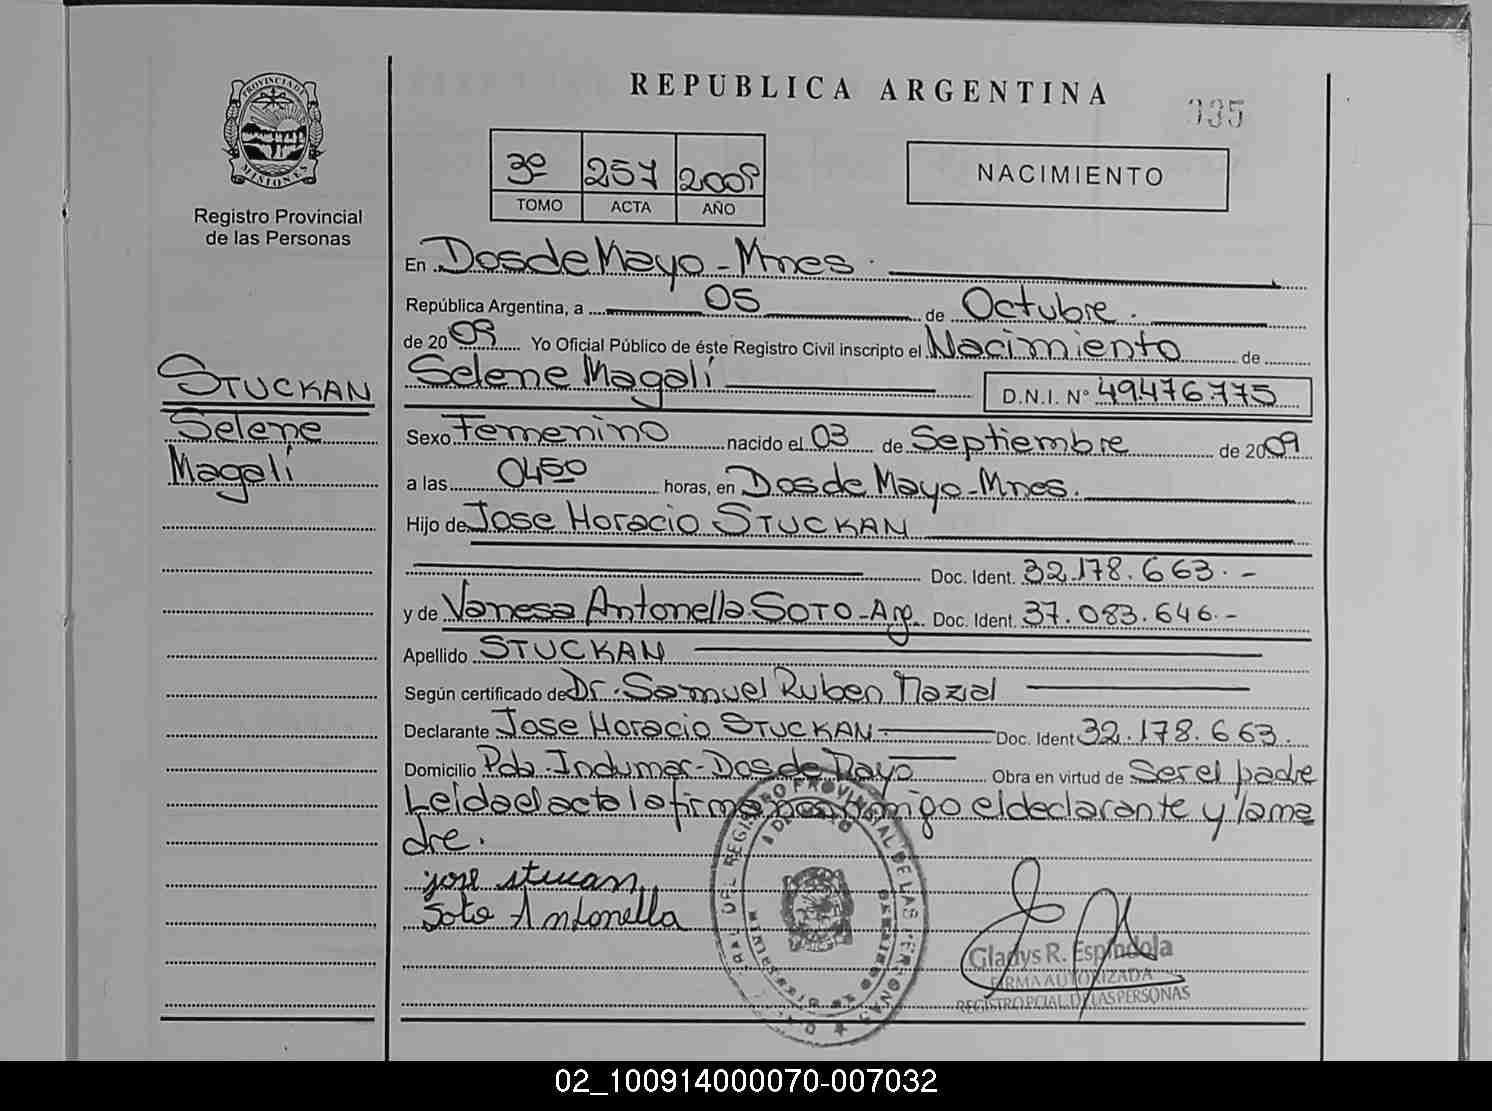 REPUBLICA ARGENTINA
335
PROVINCIA DE MISIONES
Registro Provincial
de las Personas
3º 257 2009
TOMO ACTA AÑO
NACIMIENTO
En Dos de Mayo - Mnes.
República Argentina, a 05 de Octubre.
de 2009 Yo Oficial Público de éste Registro Civil inscripto el Nacimiento de
Selene Magalí D.N.I. Nº 49.476.775
STUCKAN
Selene
Magalí
Sexo Femenino nacido el 03 de Septiembre de 2009
a las 0450 horas, en Dos de Mayo - Mnes.
Hijo de Jose Horacio STUCKAN
Doc. Ident. 32.178.663.-
y de Vanesa Antonella SOTO - Arg. Doc. Ident. 37.083.646.-
Apellido STUCKAN
Según certificado de Dr. Samuel Ruben
Declarante Jose Horacio STUCKAN Doc. Ident 32.178.663.
Domicilio Pdo. Indumar - Dos de Mayo Obra en virtud de Ser el padre
Leida el acta la firma conmigo el declarante y la ma
dre.
jose stucan
Soto Antonella
REGISTRO PROVINCIAL DE LAS PERSONAS
Gladys R. Espíndola
FIRMA AUTORIZADA
REGISTRO PCIAL. DE LAS PERSONAS
02_100914000070-007032